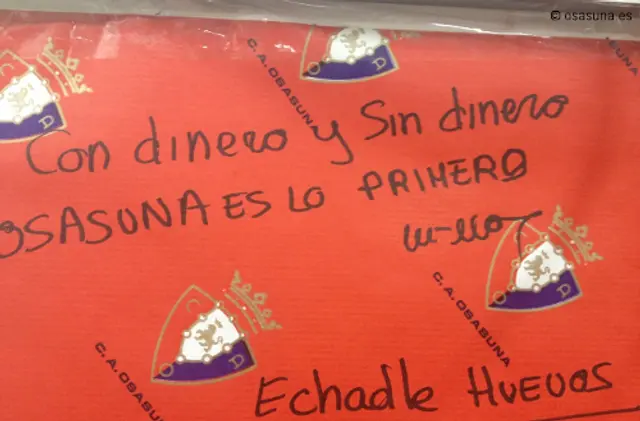 © osasuna.es
C.A. OSASUNA
Con dinero y Sin dinero
OSASUNA ES LO PRIMERO
C.A. OSASUNA
C.A. OSASUNA
Echadle HUEVOS